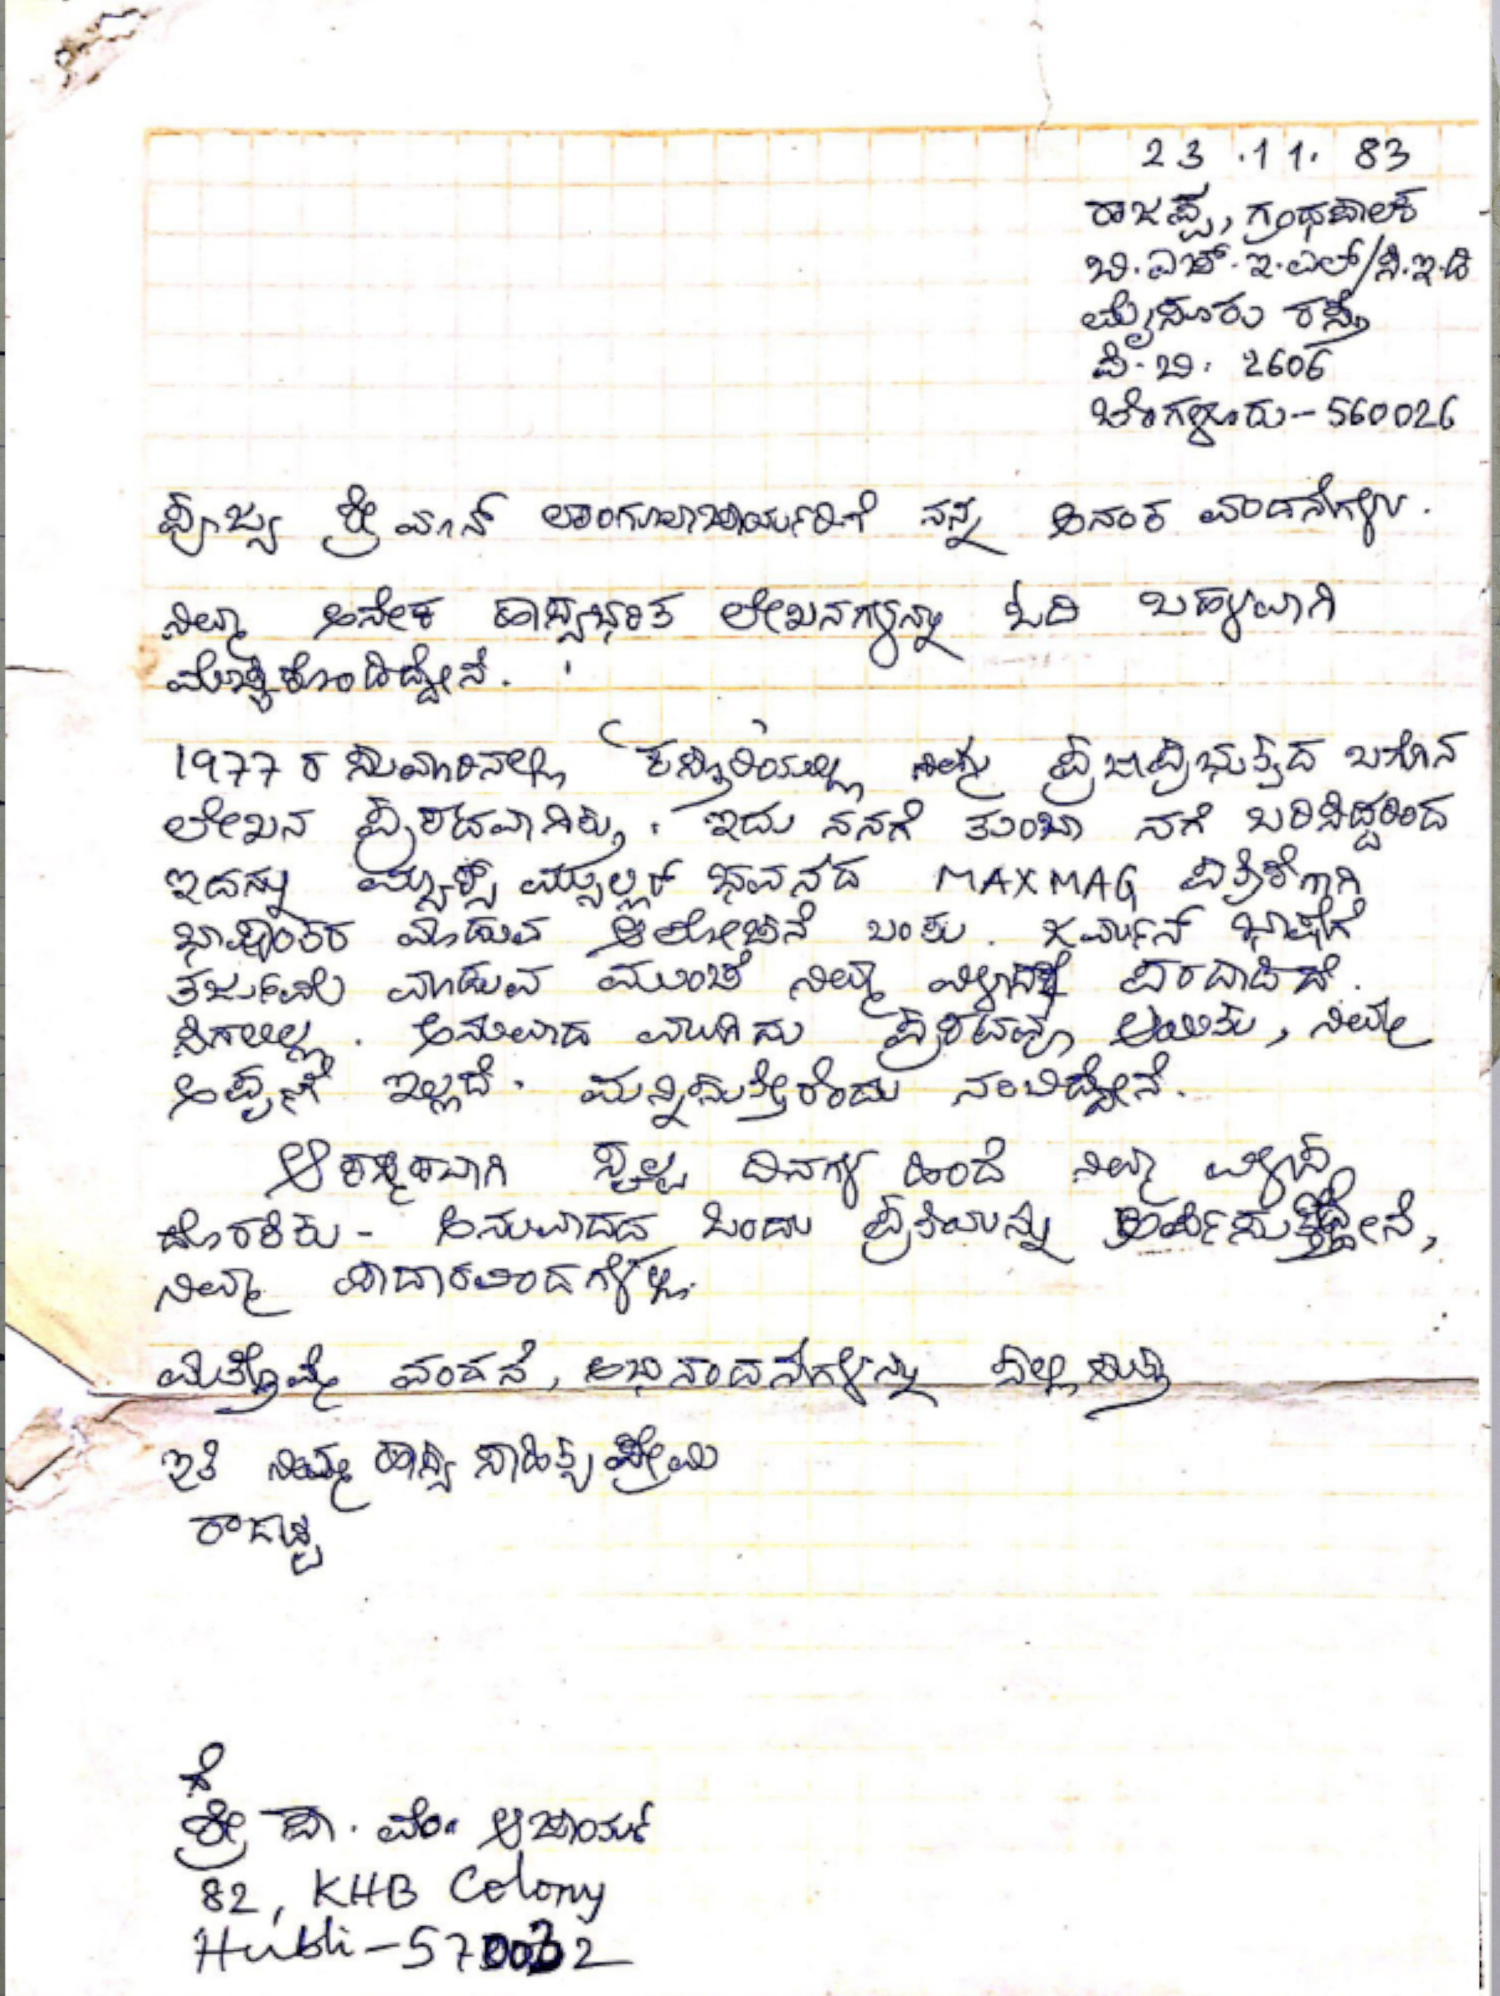 23.11.83
ರಾಜಪ್ಪ, ಗ್ರಂಥಪಾಲಕ
ಬಿ.ಎಚ್.ಇ.ಎಲ್/ಸಿ.ಇ.ಡಿ
ಮೈಸೂರು ರಸ್ತೆ
ಪಿ.ಬಿ. 2606
ಬೆಂಗಳೂರು-560026
ಪೂಜ್ಯ ಶ್ರೀಮಾನ್ ಲಾಂಗೂಲಾಚಾರ್ಯರಿಗೆ ನನ್ನ ಅನಂತ ವಂದನೆಗಳು.
ನಿಮ್ಮ ಅನೇಕ ಹಾಸ್ಯಭರಿತ ಲೇಖನಗಳನ್ನು ಓದಿ ಬಹಳವಾಗಿ
ಮೆಚ್ಚಿಕೊಂಡಿದ್ದೇನೆ.
1977 ರ ಸುಮಾರಿನಲ್ಲಿ 'ಕಸ್ತೂರಿ'ಯಲ್ಲಿ ನಿಮ್ಮ ಪ್ರಜಾಪ್ರಭುತ್ವದ ಬಗೆಗಿನ
ಲೇಖನ ಪ್ರಕಟವಾಗಿತ್ತು. ಇದು ನನಗೆ ತುಂಬಾ ನಗೆ ಬರಿಸಿದ್ದರಿಂದ
ಇದನ್ನು ಮ್ಯಾಕ್ಸ್ ಮ್ಯುಲ್ಲರ್ ಭವನದ MAXMAG ಪತ್ರಿಕೆಗಾಗಿ
ಭಾಷಾಂತರ ಮಾಡುವ ಆಲೋಚನೆ ಬಂತು. ಜರ್ಮನ್ ಭಾಷೆಗೆ
ತರ್ಜುಮೆ ಮಾಡುವ ಮುಂಚೆ ನಿಮ್ಮ ವಿಳಾಸಕ್ಕೆ ಪರದಾಡಿದೆ.
ಸಿಗಲಿಲ್ಲ. ಅನುವಾದ ಮುಗಿಸು ಪ್ರಕಟವೂ ಆಯಿತು, ನಿಮ್ಮ
ಅಪ್ಪಣೆ ಇಲ್ಲದೆ. ಮನ್ನಿಸುತ್ತೀರೆಂದು ನಂಬಿದ್ದೇನೆ.
ಆಕಸ್ಮಿಕವಾಗಿ ಸ್ವಲ್ಪ ದಿನಗಳ ಹಿಂದೆ ನಿಮ್ಮ ವಿಳಾಸ
ದೊರಕಿತು - ಅನುವಾದದ ಒಂದು ಪ್ರತಿಯನ್ನು ಅರ್ಪಿಸುತ್ತಿದ್ದೇನೆ,
ನಿಮ್ಮ ಪಾದಾರವಿಂದಗಳಲ್ಲಿ.
ಮತ್ತೊಮ್ಮೆ ವಂದನೆ, ಅಭಿನಂದನೆಗಳನ್ನು ಸಲ್ಲಿಸುತ್ತಾ
ಇತಿ ನಿಮ್ಮ ಹಾಸ್ಯ ಸಾಹಿತ್ಯ ಪ್ರೇಮಿ
ರಾಜಪ್ಪ
ಗೆ
ಶ್ರೀ ಪಾ. ವೆಂ. ಆಚಾರ್ಯ
82, KHB Colony
Hubli-